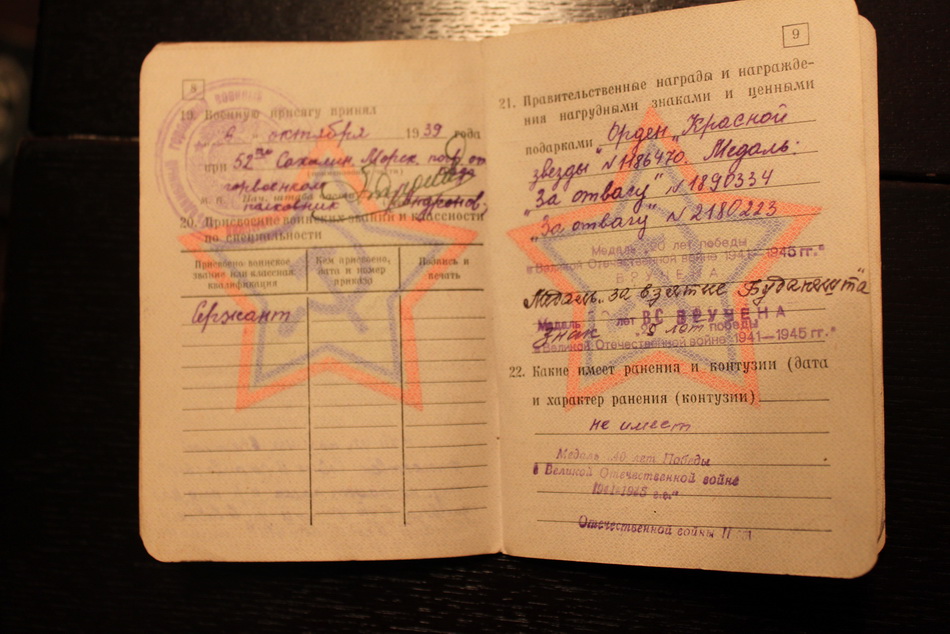 8
19. Военную присягу принял
октября 1939 года
при 52 Сахалин. Морск. погр. от
полковник
20. Присвоение воинских званий и классности
по специальности
Присвоено воинское
звание или классная
квалификация
Кем присвоено,
дата и номер
приказа
Подпись и
печать
Сержант
9
21. Правительственные награды и награжде-
ния нагрудными знаками и ценными
подарками Орден „Красной
звезды" N 1186470. Медаль:
„За отвагу" N 1890334
„За отвагу" N 2180223
Медаль 50 лет победы
в Великой Отечественной войне 1941—1945 гг."
ВРУЧЕНА
Медаль „за взятие Будапешта"
Медаль лет ВС ВРУЧЕНА
Знак 25 лет победы
в Великой Отечественной войне 1941—1945 гг."
22. Какие имеет ранения и контузии (дата
и характер ранения (контузии)
не имеет
Медаль „40 лет Победы
в Великой Отечественной войне
1941-1945 г.г."
Отечественной войны II